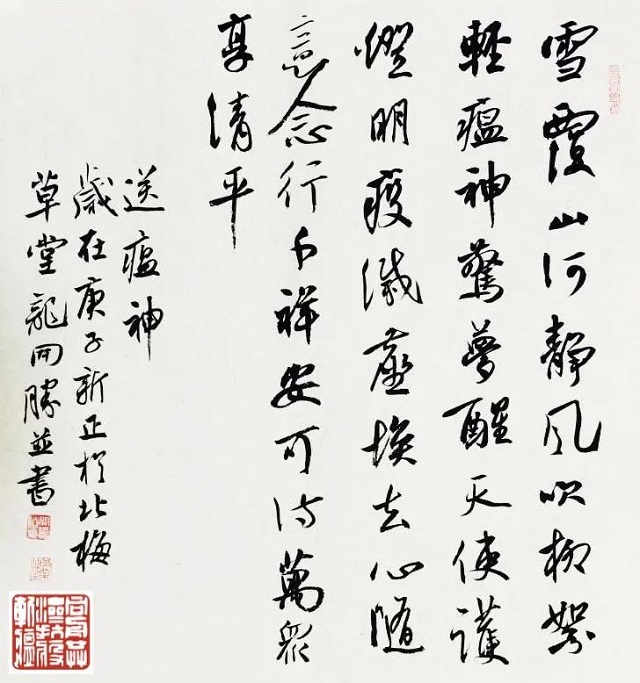 雪覆山河靜風吹柳絮
輕瘟神驚夢醒天使護
燈明疫滅塵埃去心隨
意念行千祥安可待萬眾
享清平
送瘟神
歲在庚子新正於北梅
草堂龍開勝並書